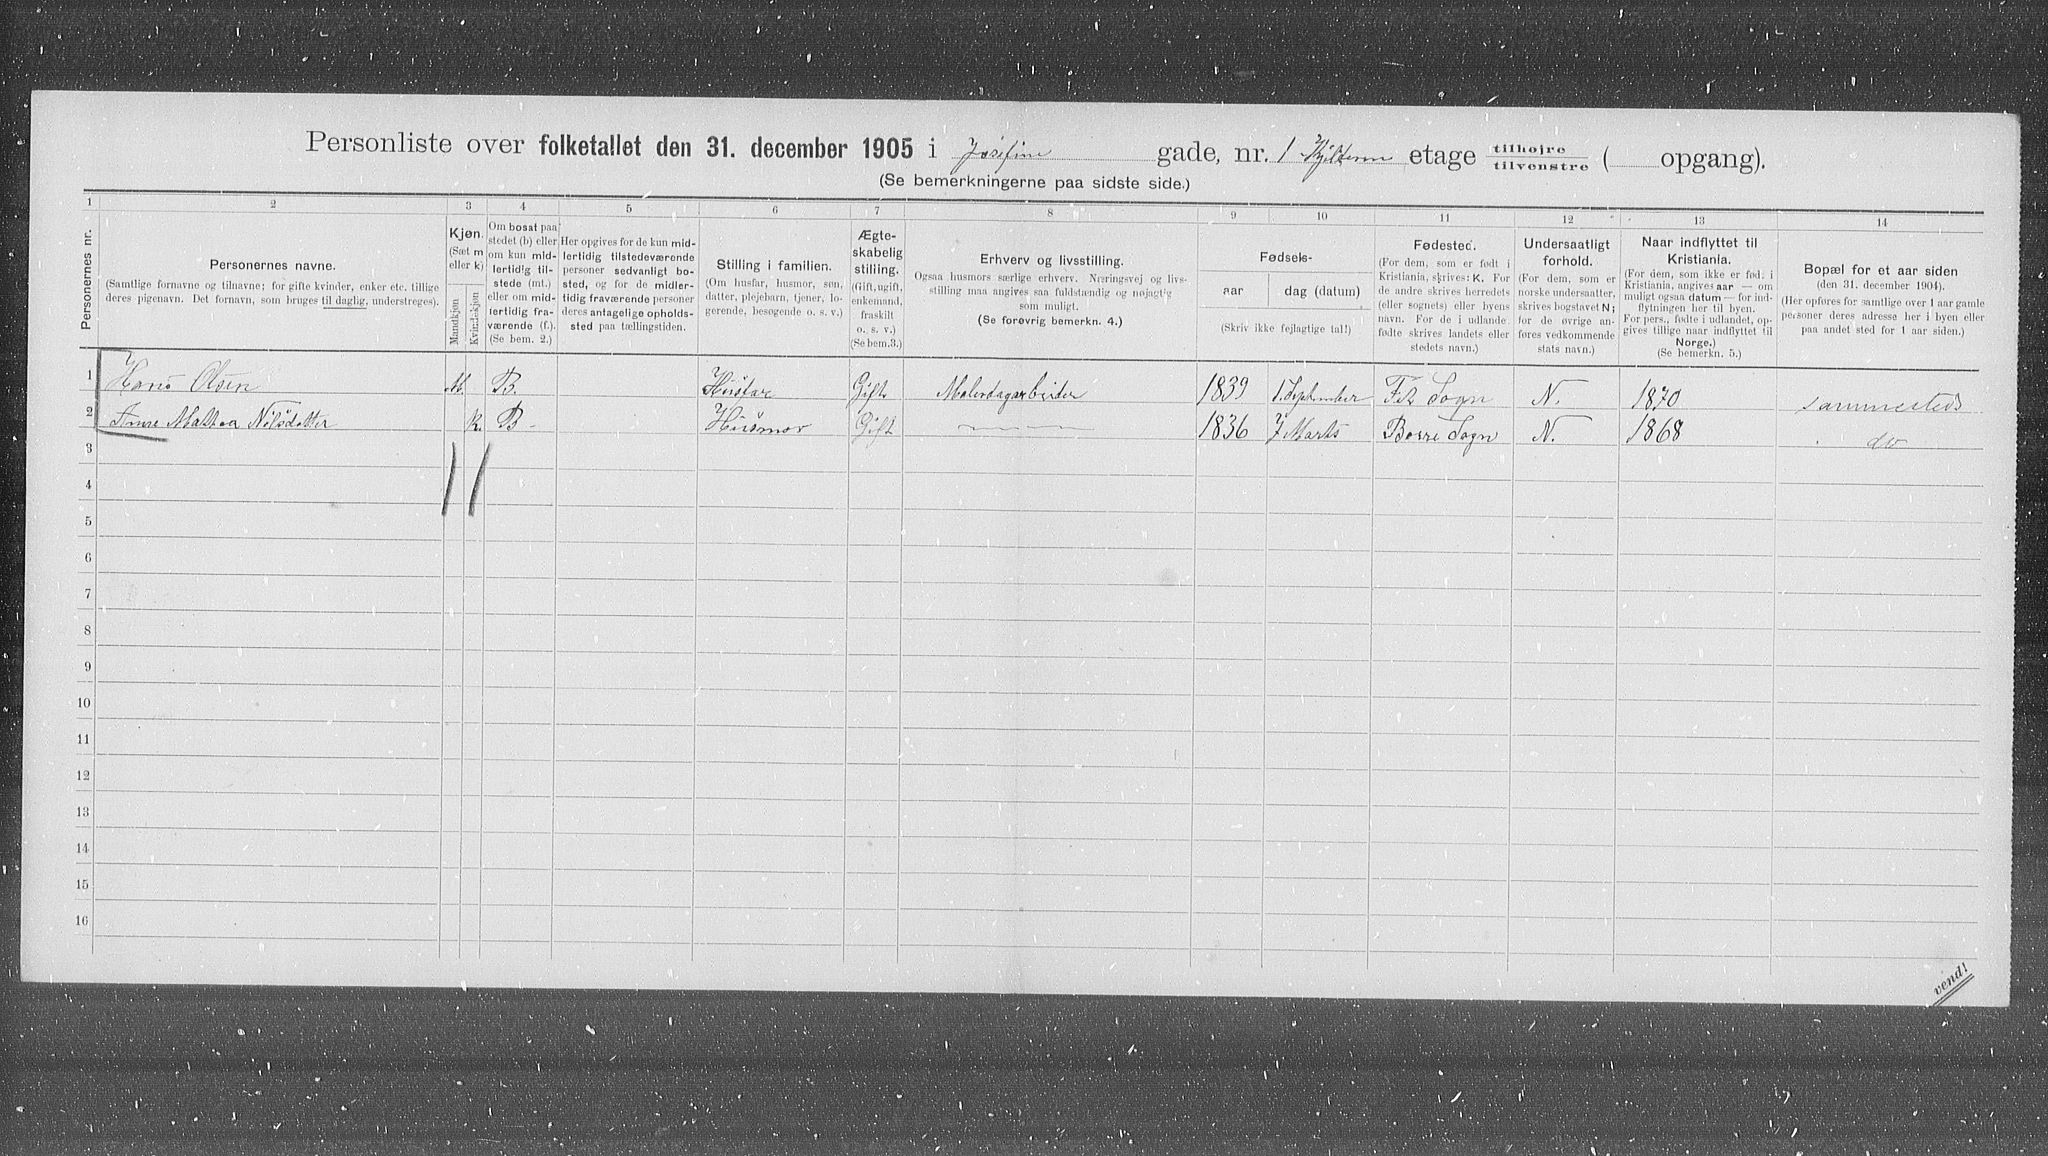 Personliste over folketallet den 31. december 1905 i Josefine gade, nr. 1 Kjelderen etage tilhøjre tilvenstre ( opgang).
(Se bemerkningerne paa sidste side.)
1 2 3 4 5 6 7 8 9 10 11 12 13 14
Personernes nr.
Personernes navne.
(Samtlige fornavne og tilnavne; for gifte kvinder, enker etc. tillige
deres pigenavn. Det fornavn, som bruges til daglig, understreges).
Kjøn.
(Sæt m
eller k)
Mandkjøn
Kvindekjøn
Om bosat paa
stedet (b) eller
om kun mid-
lertidig til-
stede (mt.)
eller om mid-
lertidig fra-
værende (f.).
(Se bem. 2.)
Her opgives for de kun mid-
lertidig tilstedeværende
personer sedvanligt bo-
sted, og for de midler-
tidig fraværende personer
deres antagelige opholds-
sted paa tællingstiden.
Stilling i familien.
(Om husfar, husmor, søn,
datter, plejebarn, tjener, lo-
gerende, besøgende o. s. v.)
Ægte-
skabelig
stilling.
(Gift, ugift,
enkemand,
fraskilt
o. s. v.)
(Se bem.3.)
Erhverv og livsstilling.
Ogsaa husmors særlige erhverv. Næringsvej og livs-
stilling maa angives saa fuldstændig og nøjagtig
som muligt.
(Se forøvrig bemerkn. 4.)
Fødsels-
aar
dag (datum)
(Skriv ikke fejlagtige tal!)
Fødested.
(For dem, som er født i
Kristiania, skrives: K. For
de andre skrives herredets
(eller sognets) eller byens
navn. For de i udlandet
fødte skrives landets eller
stedets navn.)
Undersaatligt
forhold.
(For dem, som er
norske undersaatter,
skrives bogstavet N;
for de øvrige an-
føres vedkommende
stats navn.)
Naar indflyttet til
Kristiania.
(For dem, som ikke er fød. i
Kristiania, angives aar — om
muligt ogsaa datum — for ind-
flytningen her til byen.
For pers., fødte i udlandet, op-
gives tillige naar indflyttet til
Norge.)
(Se bemerkn. 5.)
Bopæl for et aar siden
(den 31. december 1904).
(Her opføres for samtlige over 1 aar gamle
personer deres adresse her i byen eller
paa andet sted for 1 aar siden.)
1 Hans Olsen M. B. Husfar Gift Malerdagarbeider 1839 1. September Fet Sogn N. 1870 sammesteds
2 Anne Mattea Nilsdatter k. B- Husmor Gift 1836 7 Marts Borre Sogn N. 1868 do
3
4
5
6
7
8
9
10
11
12
13
14
15
16
vend!